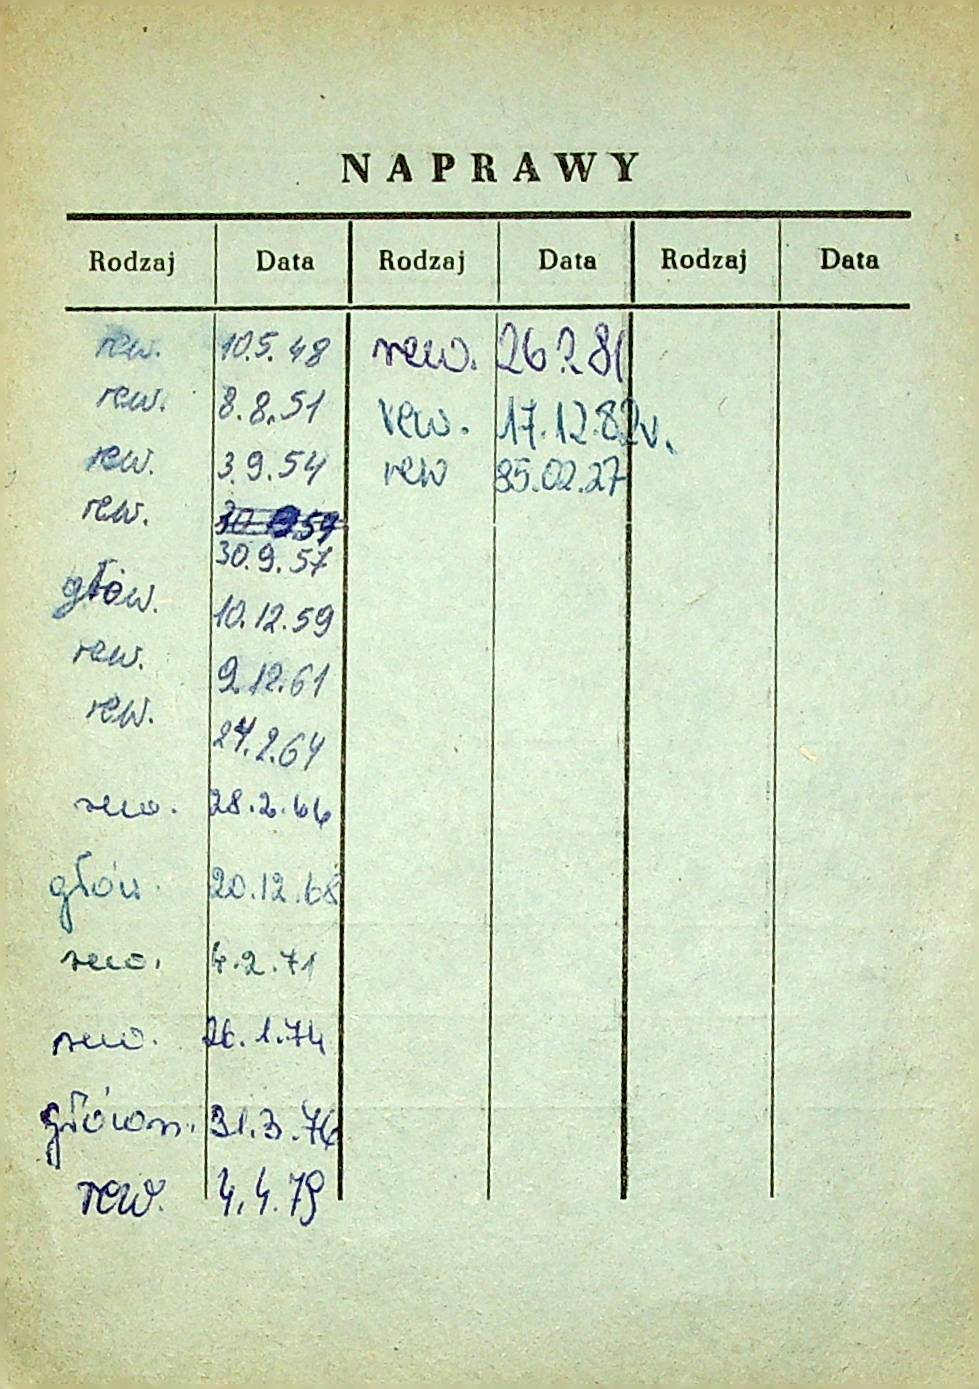 NAPRAWY
Rodzaj Data Rodzaj Data Rodzaj Data
rew. 10.5.48 rew. 26.2.81
rew. 8.8.51 rew. 17.12.82r.
rew. 3.9.54 rew 85.02.27
rew.
30.9.57
głów. 10.12.59
rew. 9.12.61
rew. 24.2.64
rew. 28.2.66
głów. 20.12.68
rew. 4.2.71
rew. 26.1.74
główn. 31.3.76
rew. 4.4.79